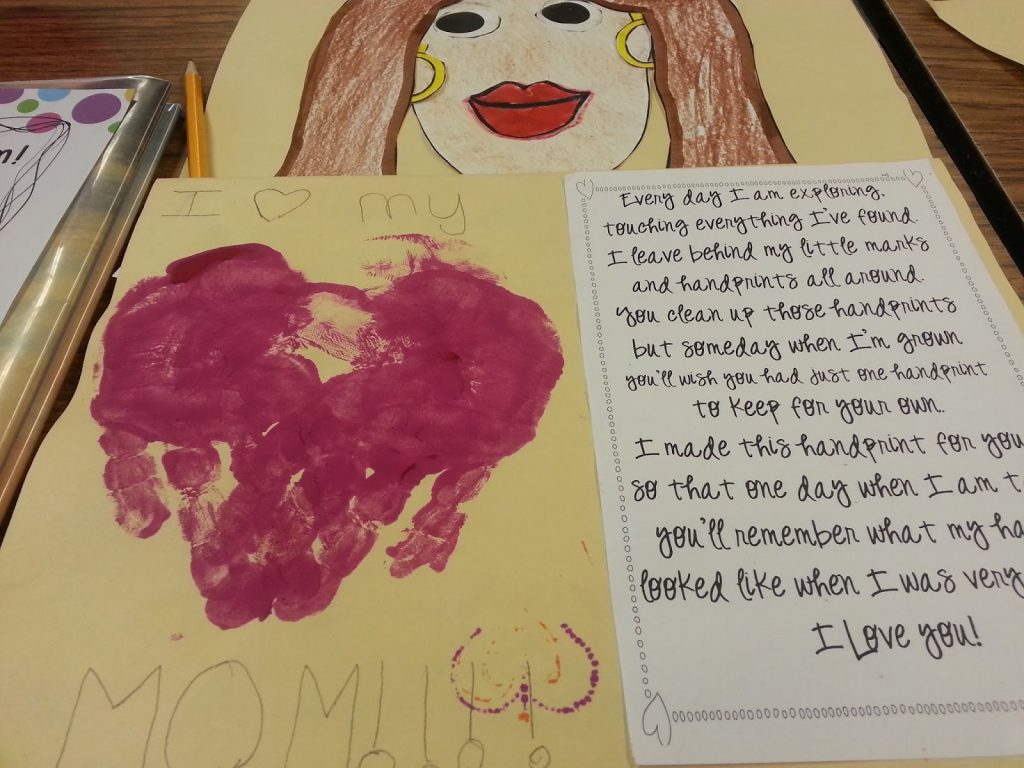 m!
I ♡ my
MOM!!!!
Every day I am exploring,
touching everything I've found.
I leave behind my little marks
and handprints all around.
You clean up those handprints
but someday when I'm grown
you'll wish you had just one handprint
to keep for your own.
I made this handprint for you
so that one day when I am
you'll remember what my
looked like when I was very
I Love you!